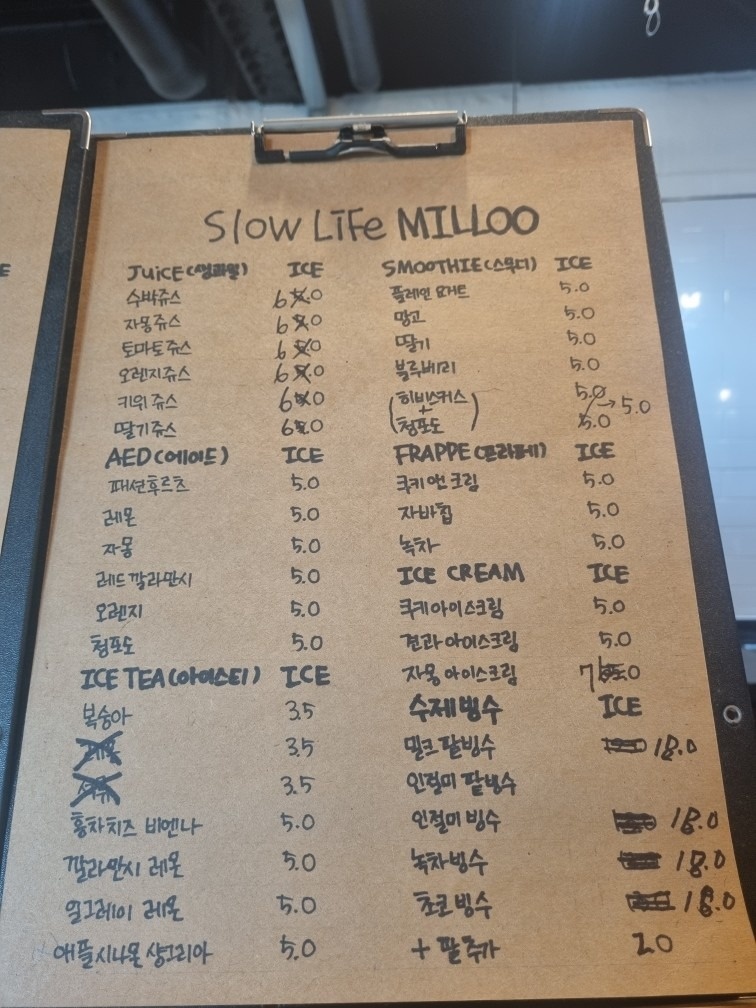 Slow Life MILLOO
JUICE(생과일) ICE
수박쥬스 6.0
자몽쥬스 6.0
토마토쥬스 6.0
오렌지쥬스 6.0
키위쥬스 6.0
딸기쥬스 6.0
AED(에이드) ICE
패션후르츠 5.0
레몬 5.0
자몽 5.0
레드깔라만시 5.0
오렌지 5.0
청포도 5.0
ICE TEA(아이스티) ICE
복숭아 3.5
3.5
3.5
홍차치즈 비엔나 5.0
깔라만시 레몬 5.0
얼그레이 레몬 5.0
애플시나몬 샹그리아 5.0
SMOOTHIE(스무디) ICE
플레인 요거트 5.0
망고 5.0
딸기 5.0
블루베리 5.0
(히비스커스 5.0
+ → 5.0
청포도) 5.0
FRAPPE(프라페) ICE
쿠키앤크림 5.0
자바칩 5.0
녹차 5.0
ICE CREAM ICE
쿠키아이스크림 5.0
견과아이스크림 5.0
자몽아이스크림 7.0
수제빙수 ICE
밀크팥빙수 18.0
인절미 팥빙수
인절미빙수 18.0
녹차빙수 18.0
초코빙수 18.0
+ 팥추가 2.0